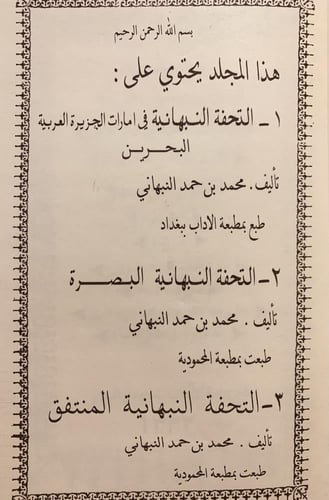 بسم الله الرحمن الرحيم
هذا المجلد يحتوي على :
١ - التحفة النبهانية في امارات الجزيرة العربية
البحرين
تأليف . محمد بن حمد النبهاني
طبع بمطبعة الاداب ببغداد
٢ - التحفة النبهانية البصرة
تأليف . محمد بن حمد النبهاني
طبعت بمطبعة المحمودية
٣ - التحفة النبهانية المنتفق
تأليف . محمد بن حمد النبهاني
طبعت بمطبعة المحمودية